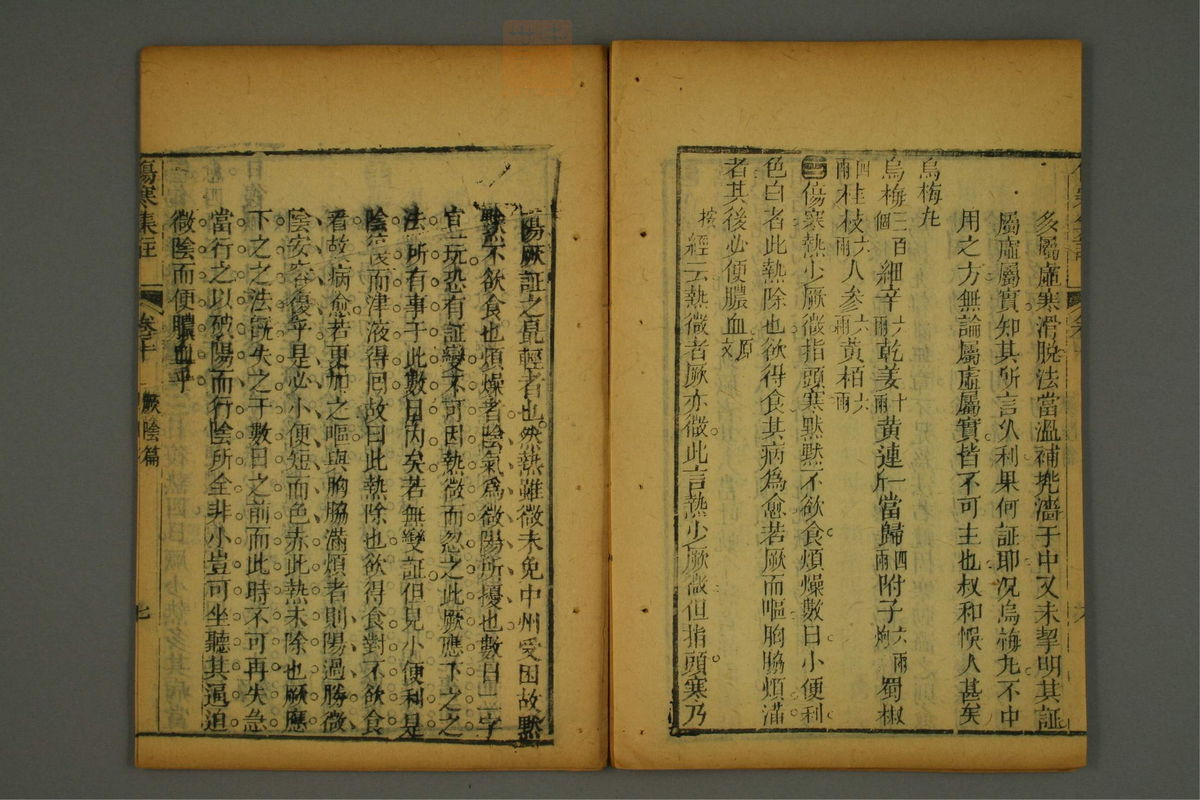 多屬虛寒滑脫法當溫補㐬濇于中又未挈明其証
屬虛屬實知其所言久利果何証耶况烏梅丸不中
用之方無論屬虛屬實皆不可主也叔和悞人甚矣
烏梅丸
烏梅三百個 細辛六兩 乾姜十兩 黃連一斤 當歸四兩 附子六兩炮 蜀椒
四兩 桂枝六兩 人參六兩 黃栢六兩
傷寒熱少厥微指頭寒默默不欲食煩燥數日小便利
色白者此熱除也欲得食其病為愈若厥而嘔胸脇煩滿
者其後必便膿血原文
按經云熱微者厥亦微此言熱少厥微但指頭寒乃
陽厥証之最輕者也然熱雖微未免中州受困故默
默不欲食也煩燥者陰氣為微陽所擾也數日二字
宜玩恐有証變不可因熱微而忽之此厥應下之之
法所有事于此數日內矣若無變証但見小便利是
陰復而津液得回故曰此熱除也欲得食對不欲食
看故病愈若更加之嘔與胸脇滿煩者則陽過勝微
陰安容復乎是必小便短而色赤此熱未除也厥應
下之之法既失之于數日之前而此時不可再失急
當行之以破陽而行陰所全非小豈可坐聽其逼迫
微陰而便膿血乎
傷寒集註 卷十 厥陰篇 七